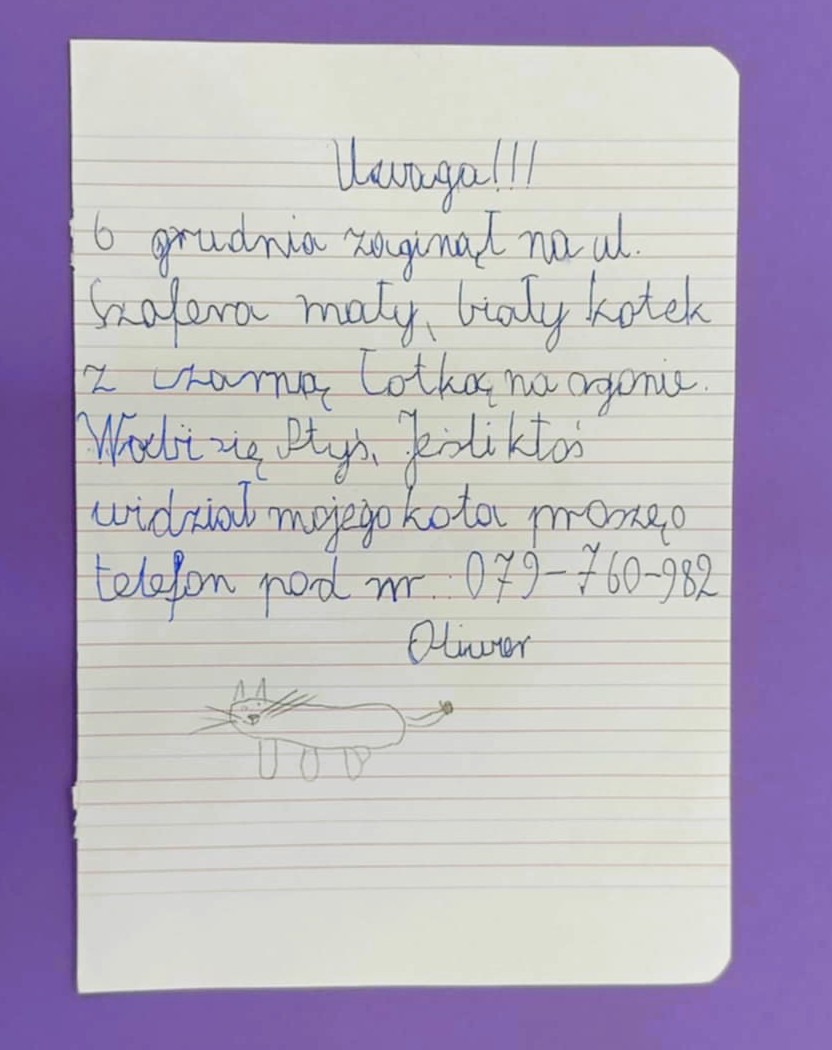 Uwaga!!!
6 grudnia zaginął na ul.
Szafera mały, biały kotek
z czarną łatką na ogonie.
Wabi się Ptyś. Jeśli ktoś
widział mojego kota proszę o
telefon pod nr.: 079-760-982
Oliwer